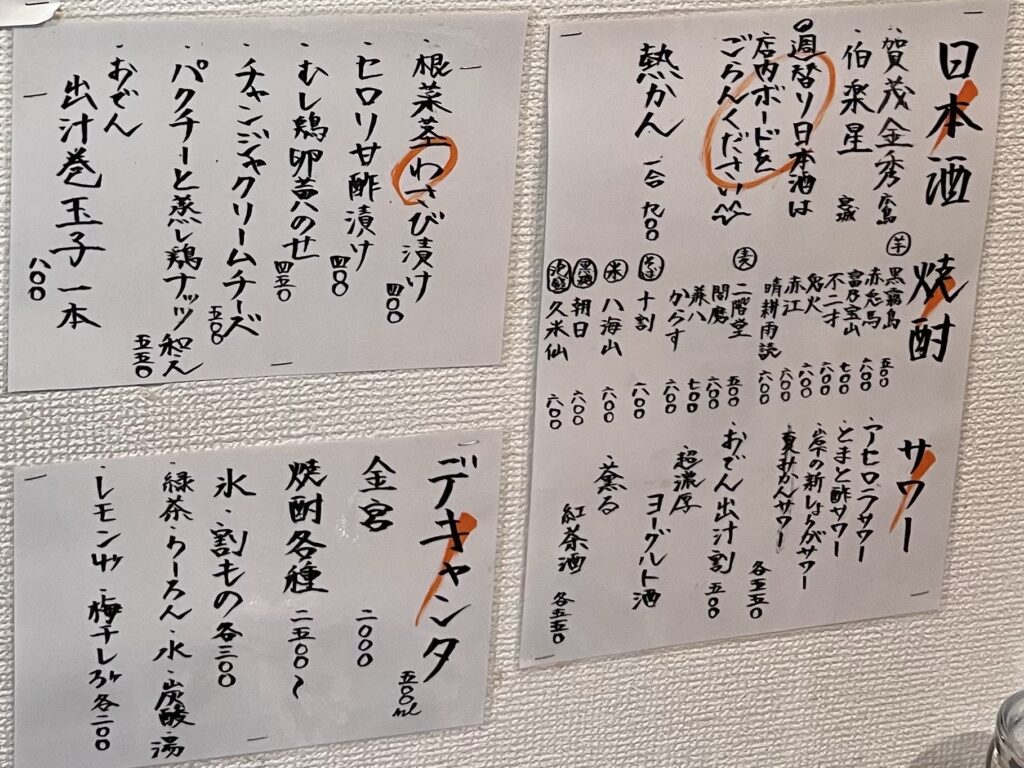 日本酒
・賀茂金秀 広島
・伯楽星 宮城
週替り日本酒は
店内ボードを
ごらんください
熱かん 一合 九〇〇
焼酎
芋 黒霧島 五〇〇
赤兎馬 六〇〇
富乃宝山 七〇〇
不二才 六〇〇
鬼火 六〇〇
赤江 六〇〇
晴耕雨読 六〇〇
麦 二階堂 五〇〇
閻魔 六〇〇
兼八 七〇〇
からす 六〇〇
そば 十割 六〇〇
米 八海山 六〇〇
黒糖 朝日 六〇〇
泡盛 久米仙 六〇〇
サワー
・アセロラサワー
・とまと酢サワー
・岩下の新しょうがサワー
・東みかんサワー 各五五〇
・おでん出汁割 五〇〇
超濃厚 ヨーグルト酒
・薫る 紅茶酒 各五五〇
・根菜茎わさび漬け 四〇〇
・セロリ甘酢漬け 四〇〇
・むし鶏卵黄のせ 四五〇
・チャンジャクリームチーズ 五〇〇
・パクチーと蒸し鶏ナッツ和え 五五〇
・おでん
出汁巻玉子一本 八〇〇
デキャンタ 五〇〇ml
金宮 二〇〇〇
焼酎各種 二五〇〇〜
氷・割もの各三〇〇
・緑茶・うーろん・水・炭酸・湯
・レモン
・梅チレ 各二〇〇